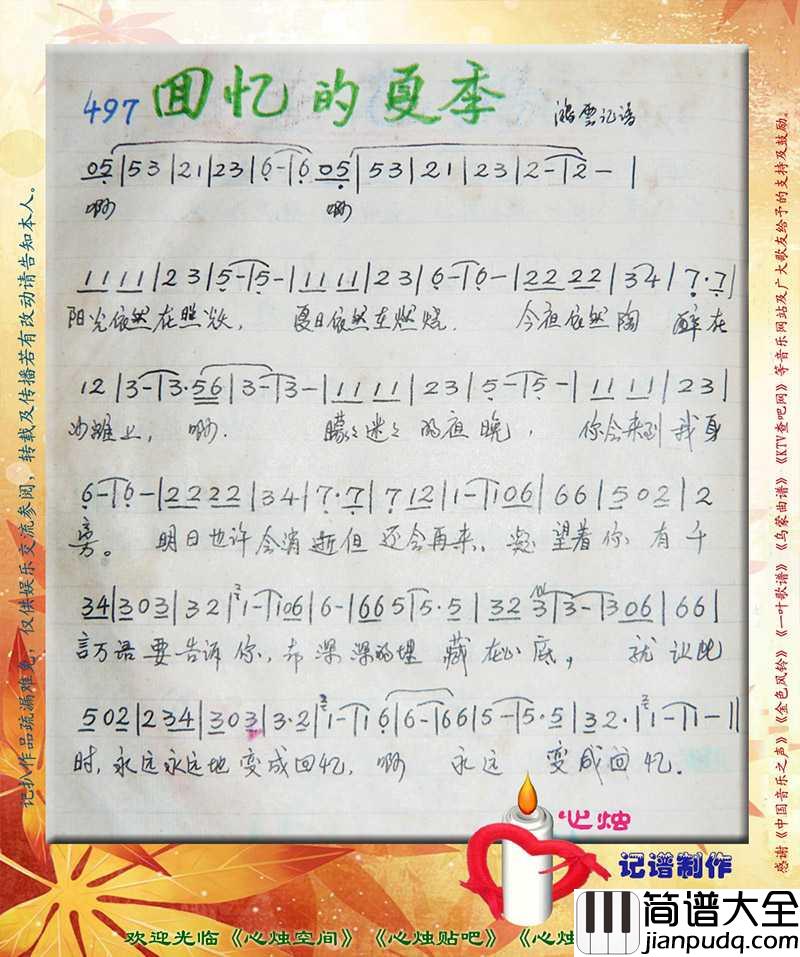 497 回忆的夏季 鸿云记谱
05|53|21|23|6-|6 05|53|21|23|2-|2-|
啊 啊
1111|23|5-|5-|1111|23|6-|6-|2222|34|7·7|
阳光依然在照燃, 夏日依然在燃烧. 今夜依然陶 醉在
12|3-|3·56|3-|3-|1111|23|5-|5-|1111|23|
沙滩上, 啊. 朦々迷々的夜晚, 你会来到我身
6-|6-|2222|34|7·7|712|1-|106|66|502|2
旁。 明日也许会消逝但还会再来、凝望着你 有千
34|303|32|1-|106|6-|665|5·5|32 3|3-|306|66|
言万语要告诉你, 却深深的埋藏在心底, 就让此
502|234|303|3·2|1-|1 6|6-|66|5-|5·5|32·|1-|1-||
时, 永远永远地变成回忆, 啊 永远 变成回忆.
记扒作品疏漏难免,仅供娱乐交流参阅,转载及传播若有改动请告知本人。
感谢《中国音乐之声》《金色风铃》《一叶歌谱》《乌蒙曲谱》《KTV查吧网》等音乐网站及广大歌友给予的支持及鼓励。
心烛
记谱制作
欢迎光临《心烛空间》《心烛贴吧》《心烛
简谱大全
jianpudq.com